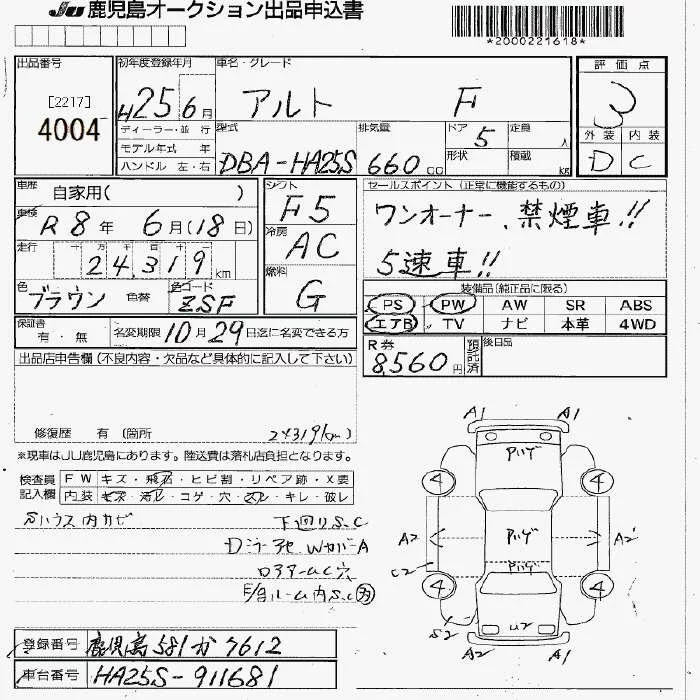 JU 鹿児島オークション出品申込書
*2000221618*
出品番号
[2217]
4004
初年度登録年月
H25年6月
ディーラー・並行
モデル年式 年
ハンドル 左・右
車名・グレード
アルト F
型式
DBA-HA25S
排気量
660 cc
ドア
5
形状
定員
人
積載
kg
評価点
3
外装 内装
D C
車歴
自家用( )
車検
R8年6月(18日)
走行
十万千百十一
24,319km
色
ブラウン
色替
色コード
ZSF
シフト
F5
冷房
AC
燃料
G
セールスポイント (正常に機能するもの)
ワンオーナー、禁煙車!!
5速車!!
装備品(純正品に限る)
PS PW AW SR ABS
エアB TV ナビ 本革 4WD
保証書
有・無
名変期限10月29日迄に名変できる方
R券
8,560円
預託済
後日品
出品店申告欄(不良内容・欠品など具体的に記入して下さい)
修復歴 有 (箇所 24319km)
※現車はJU鹿児島にあります。陸送費は落札店負担となります。
検査員記入欄
FW キズ・飛石・ヒビ割・リペア跡・X要
内装 キズ・汚れ・コゲ・穴・スレ・キレ・破レ
下回りS.C
登録番号 鹿児島581か7612
車台番号 HA25S-911681
A1 A1
4 4
A2 A2
C2
4 4
S2 U2
A2 A1